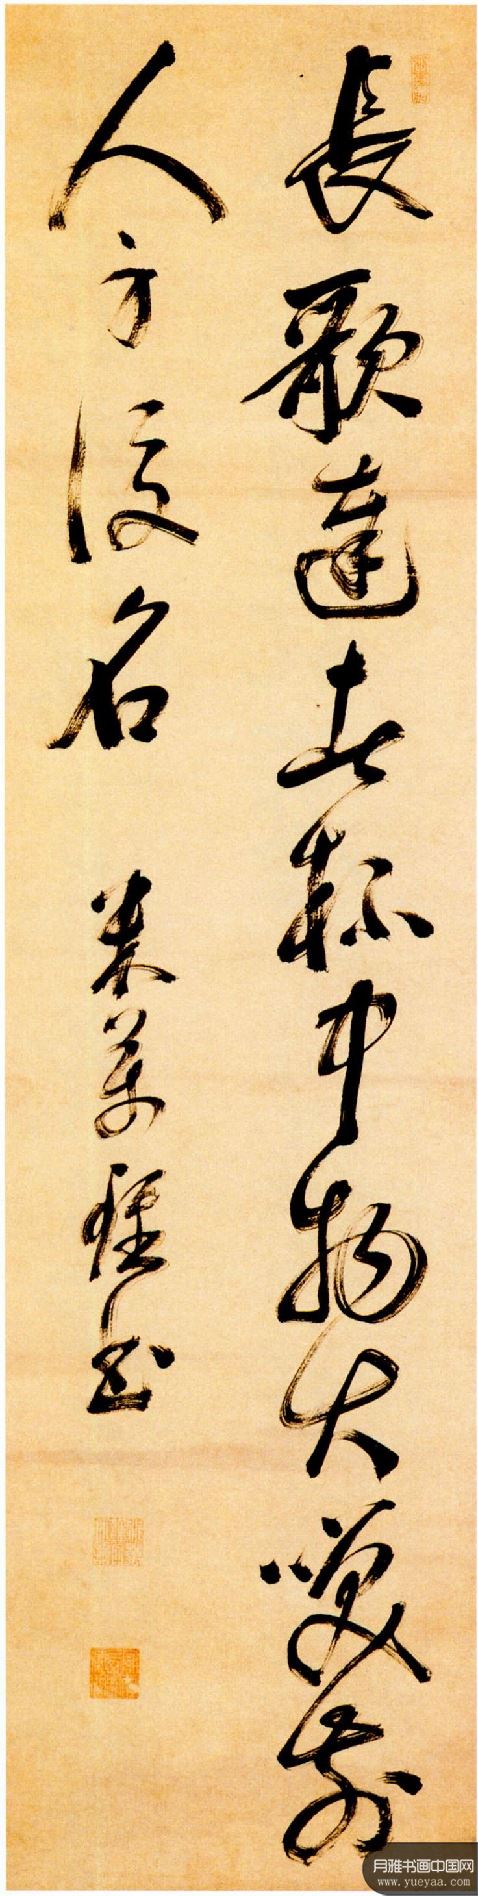 長歌達者杯中物大笑前
人身後名
米萬鍾書
月雅书画中国网
www.yueyaa.com